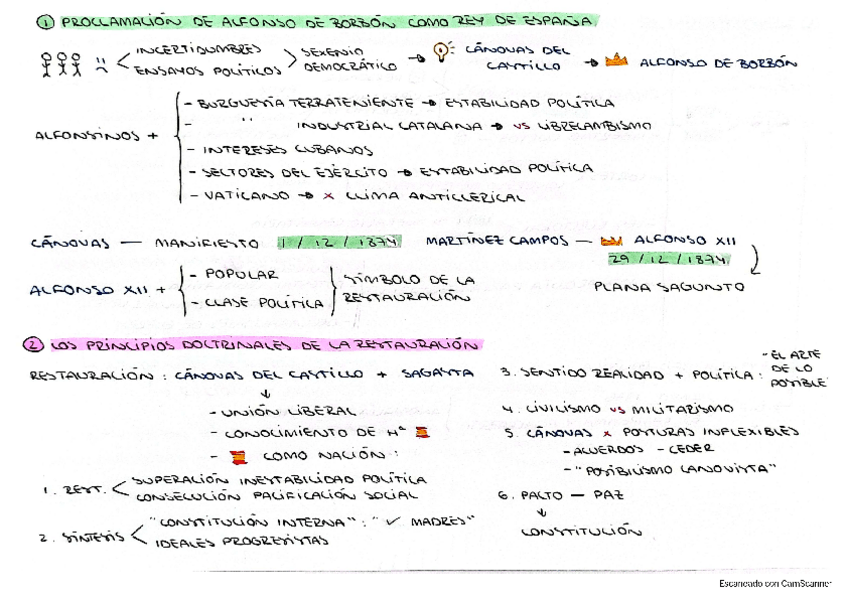 ① PROCLAMACIÓN DE ALFONSO DE BORBÓN COMO REY DE ESPAÑA
INCERTIDUMBRES
ENSAYOS POLÍTICOS
SEXENIO
DEMOCRÁTICO → CÁNOVAS DEL
CASTILLO → ALFONSO DE BORBÓN
ALFONSINOS +
- BURGUESÍA TERRATENIENTE → ESTABILIDAD POLÍTICA
- " INDUSTRIAL CATALANA → VS LIBRECAMBISMO
- INTERESES CUBANOS
- SECTORES DEL EJÉRCITO → ESTABILIDAD POLÍTICA
- VATICANO → X CLIMA ANTICLERICAL
CÁNOVAS — MANIFIESTO 1 / 12 / 1874
MARTÍNEZ CAMPOS — ALFONSO XII
29 / 12 / 1874
PLANA SAGUNTO
ALFONSO XII +
- POPULAR
- CLASE POLÍTICA
SÍMBOLO DE LA
RESTAURACIÓN
② LOS PRINCIPIOS DOCTRINALES DE LA RESTAURACIÓN
RESTAURACIÓN : CÁNOVAS DEL CASTILLO + SAGASTA
↓
- UNIÓN LIBERAL
- CONOCIMIENTO DE Hª
- COMO NACIÓN :
1. REST. < SUPERACIÓN INESTABILIDAD POLÍTICA
CONSECUCIÓN PACIFICACIÓN SOCIAL
2. SÍNTESIS < "CONSTITUCIÓN INTERNA" : "✓ MADRES"
IDEALES PROGRESISTAS
3. SENTIDO REALIDAD + POLÍTICA :
- EL ARTE
DE LO
POSIBLE
4. CIVILISMO VS MILITARISMO
5. CÁNOVAS X POSTURAS INFLEXIBLES
- ACUERDOS - CEDER
- "POSIBILISMO CANOVISTA"
6. PACTO — PAZ
↓
CONSTITUCIÓN
Escaneado con CamScanner